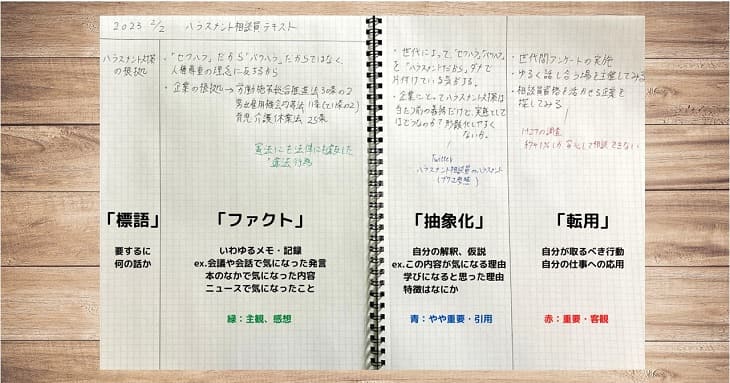 2023 2/2 ハラスメント相談員テキスト
ハラスメント対策
の根拠
・"セクハラ"だから"パワハラ"だからではなく、
人権尊重の理念に反するから
・企業の根拠→労働施策総合推進法30条の2
男女雇用機会均等法11条(11条の2)
育児介護休業法25条
憲法にも法律にも
違法行為
・世代によって、"セクハラ""パワハラ"
を"ハラスメントだから"ダメで
片付けている気がする。
・企業にとってハラスメント対策は
当たり前の義務だけど、実態として
はどうなのか?形骸化しやすく
ないか。
Twitter
ハラスメント相談員のハラスメント
・世代間アンケートの実施
・ゆるく話し合う場を主催してみる
・相談員資格を活かせる企業を
探してみる
の調査
約41%しか安心して相談できない
「標語」
要するに
何の話か
「ファクト」
いわゆるメモ・記録
ex.会議や会話で気になった発言
本のなかで気になった内容
ニュースで気になったこと
緑：主観、感想
「抽象化」
自分の解釈、仮説
ex.この内容が気になる理由
学びになると思った理由
特徴はなにか
青：やや重要・引用
「転用」
自分が取るべき行動
自分の仕事への応用
赤：重要・客観